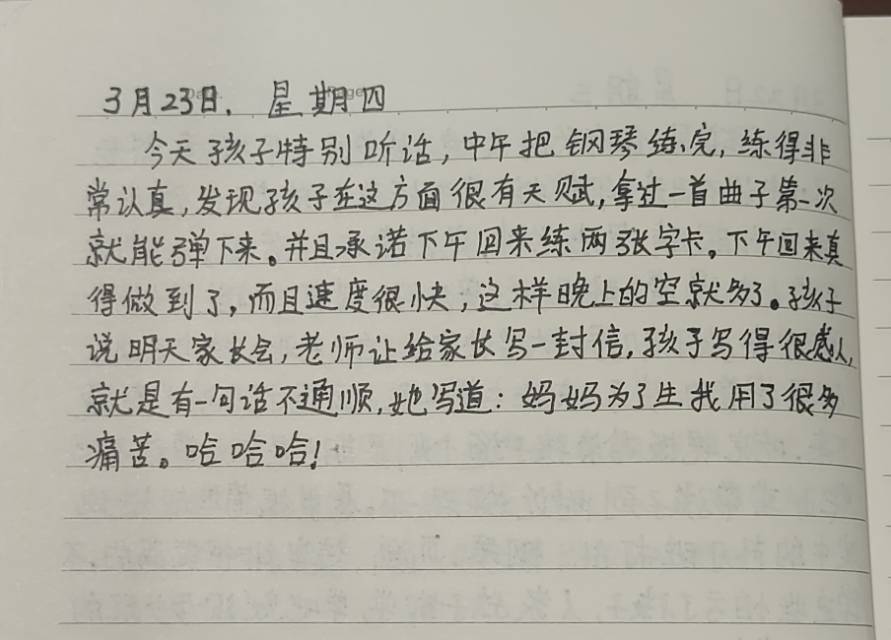 3月23日. 星期四
今天孩子特别听话,中午把钢琴练完,练得非
常认真,发现孩子在这方面很有天赋,拿过一首曲子第一次
就能弹下来。并且承诺下午回来练两张字卡。下午回来真
得做到了,而且速度很快,这样晚上的空就多了。孩子
说明天家长会,老师让给家长写一封信,孩子写得很感人,
就是有一句话不通顺,她写道:妈妈为了生我用了很多
痛苦。哈哈哈!